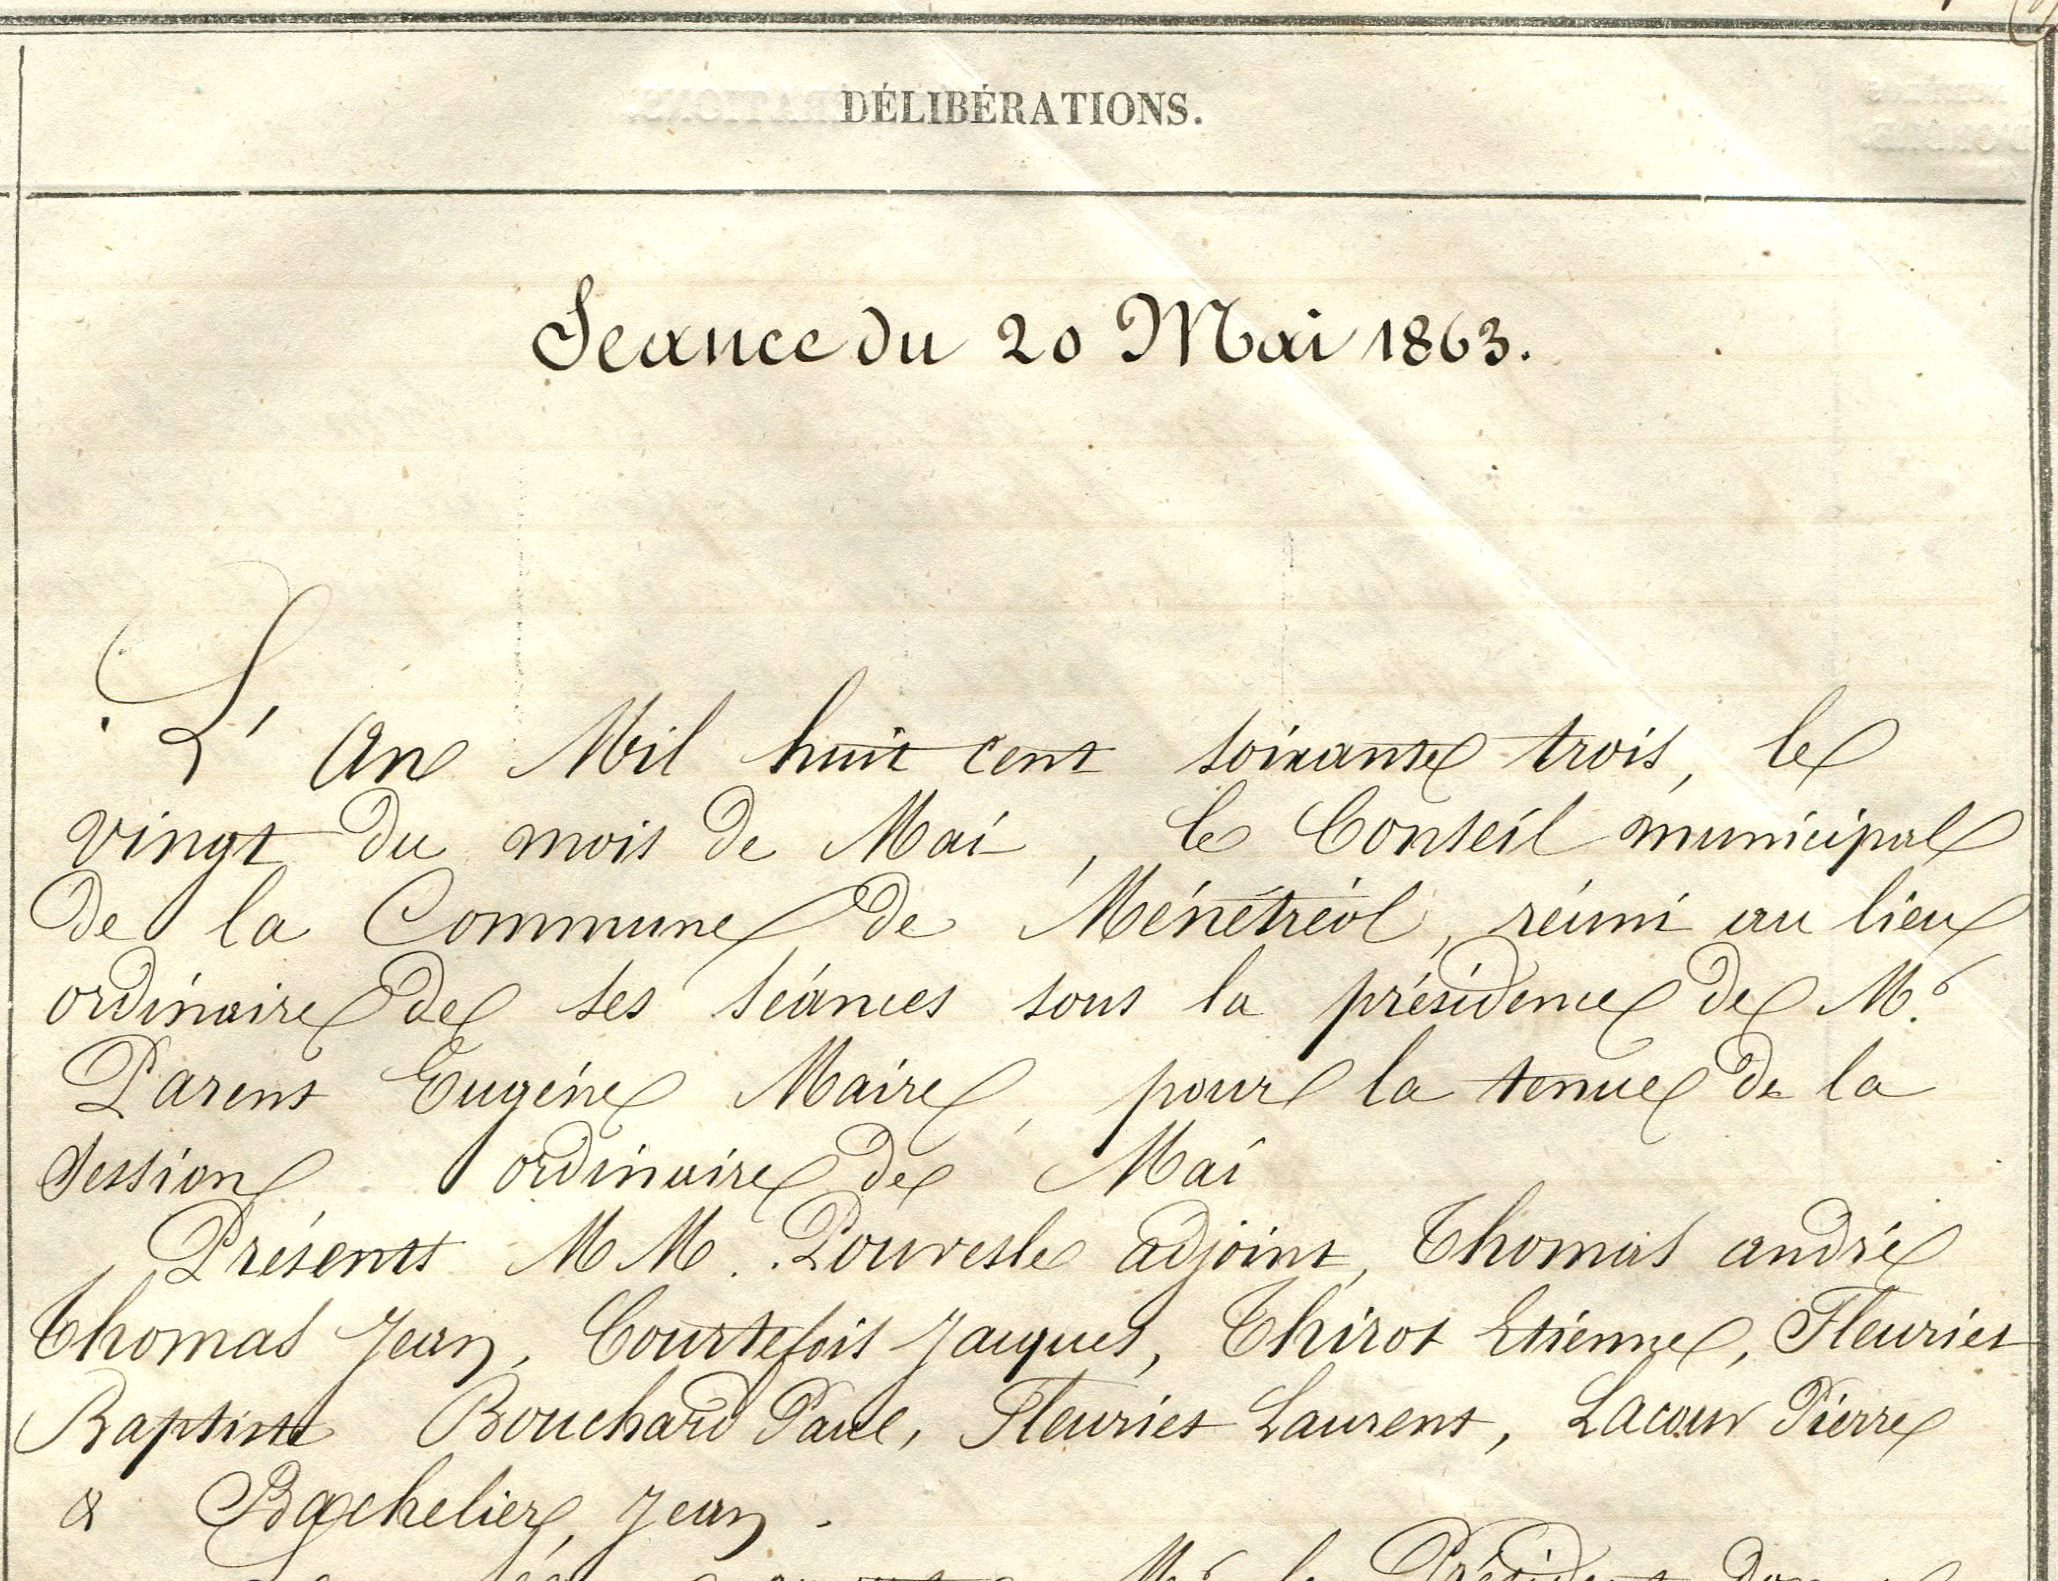 DÉLIBÉRATIONS.
Seance du 20 Mai 1863.
L'an Mil huit cent soixante trois, le
vingt du mois de Mai, le Conseil municipal
de la Commune de Ménétréol, réuni au lieu
ordinaire de ses séances sous la présidence de Mr.
Parent Eugéne Maire, pour la tenue de la
session ordinaire de Mai
Présents MM. Pouvesle adjoint, Thomas andré
Thomas Jean, Courtefois Jacques, Thirot Etienne, Fleuriet
Baptiste Bouchard Paul, Fleuriet Laurent, Lacour Pierre
& Bachelier, Jean.
Mr le Président